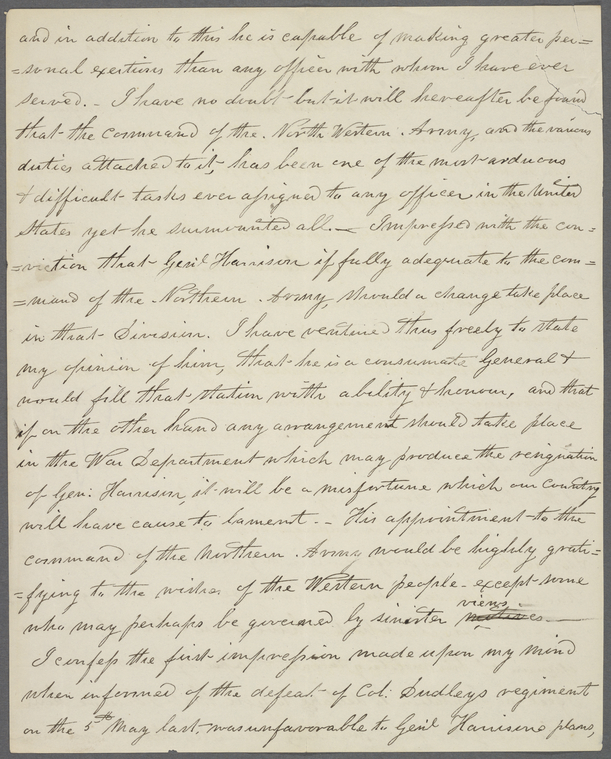 and in addition to this he is capable of making greater per=
=sonal exertions than any officer with whom I have ever
served. - I have no doubt but it will hereafter be found
that the command of the North Western Army, and the various
duties attached to it, has been one of the most arduous
& difficult tasks ever assigned to any officer in the United
States yet he surmounted all. — Impressed with the con=
=viction that Genl Harrison if fully adequate to the com=
=mand of the Northern Army, should a change take place
in that Division. I have ventured thus freely to state
my opinion of him, that he is a consumate General &
would fill that station with ability & honour, and that
if on the other hand any arrangement should take place
in the War Department which may produce the resignation
of Gen: Harrison, it will be a misfortune which our country
will have cause to lament. - - His appointment to the
command of the Northern Army would be highly grati=
=fying to the wishes of the Western people - except some
views
who may perhaps be governed by sinister motives. —
I confess the first impression made upon my mind
when informed of the defeat of Col: Dudleys regiment
on the 5th May last, was unfavorable to Genl Harrisons plans,